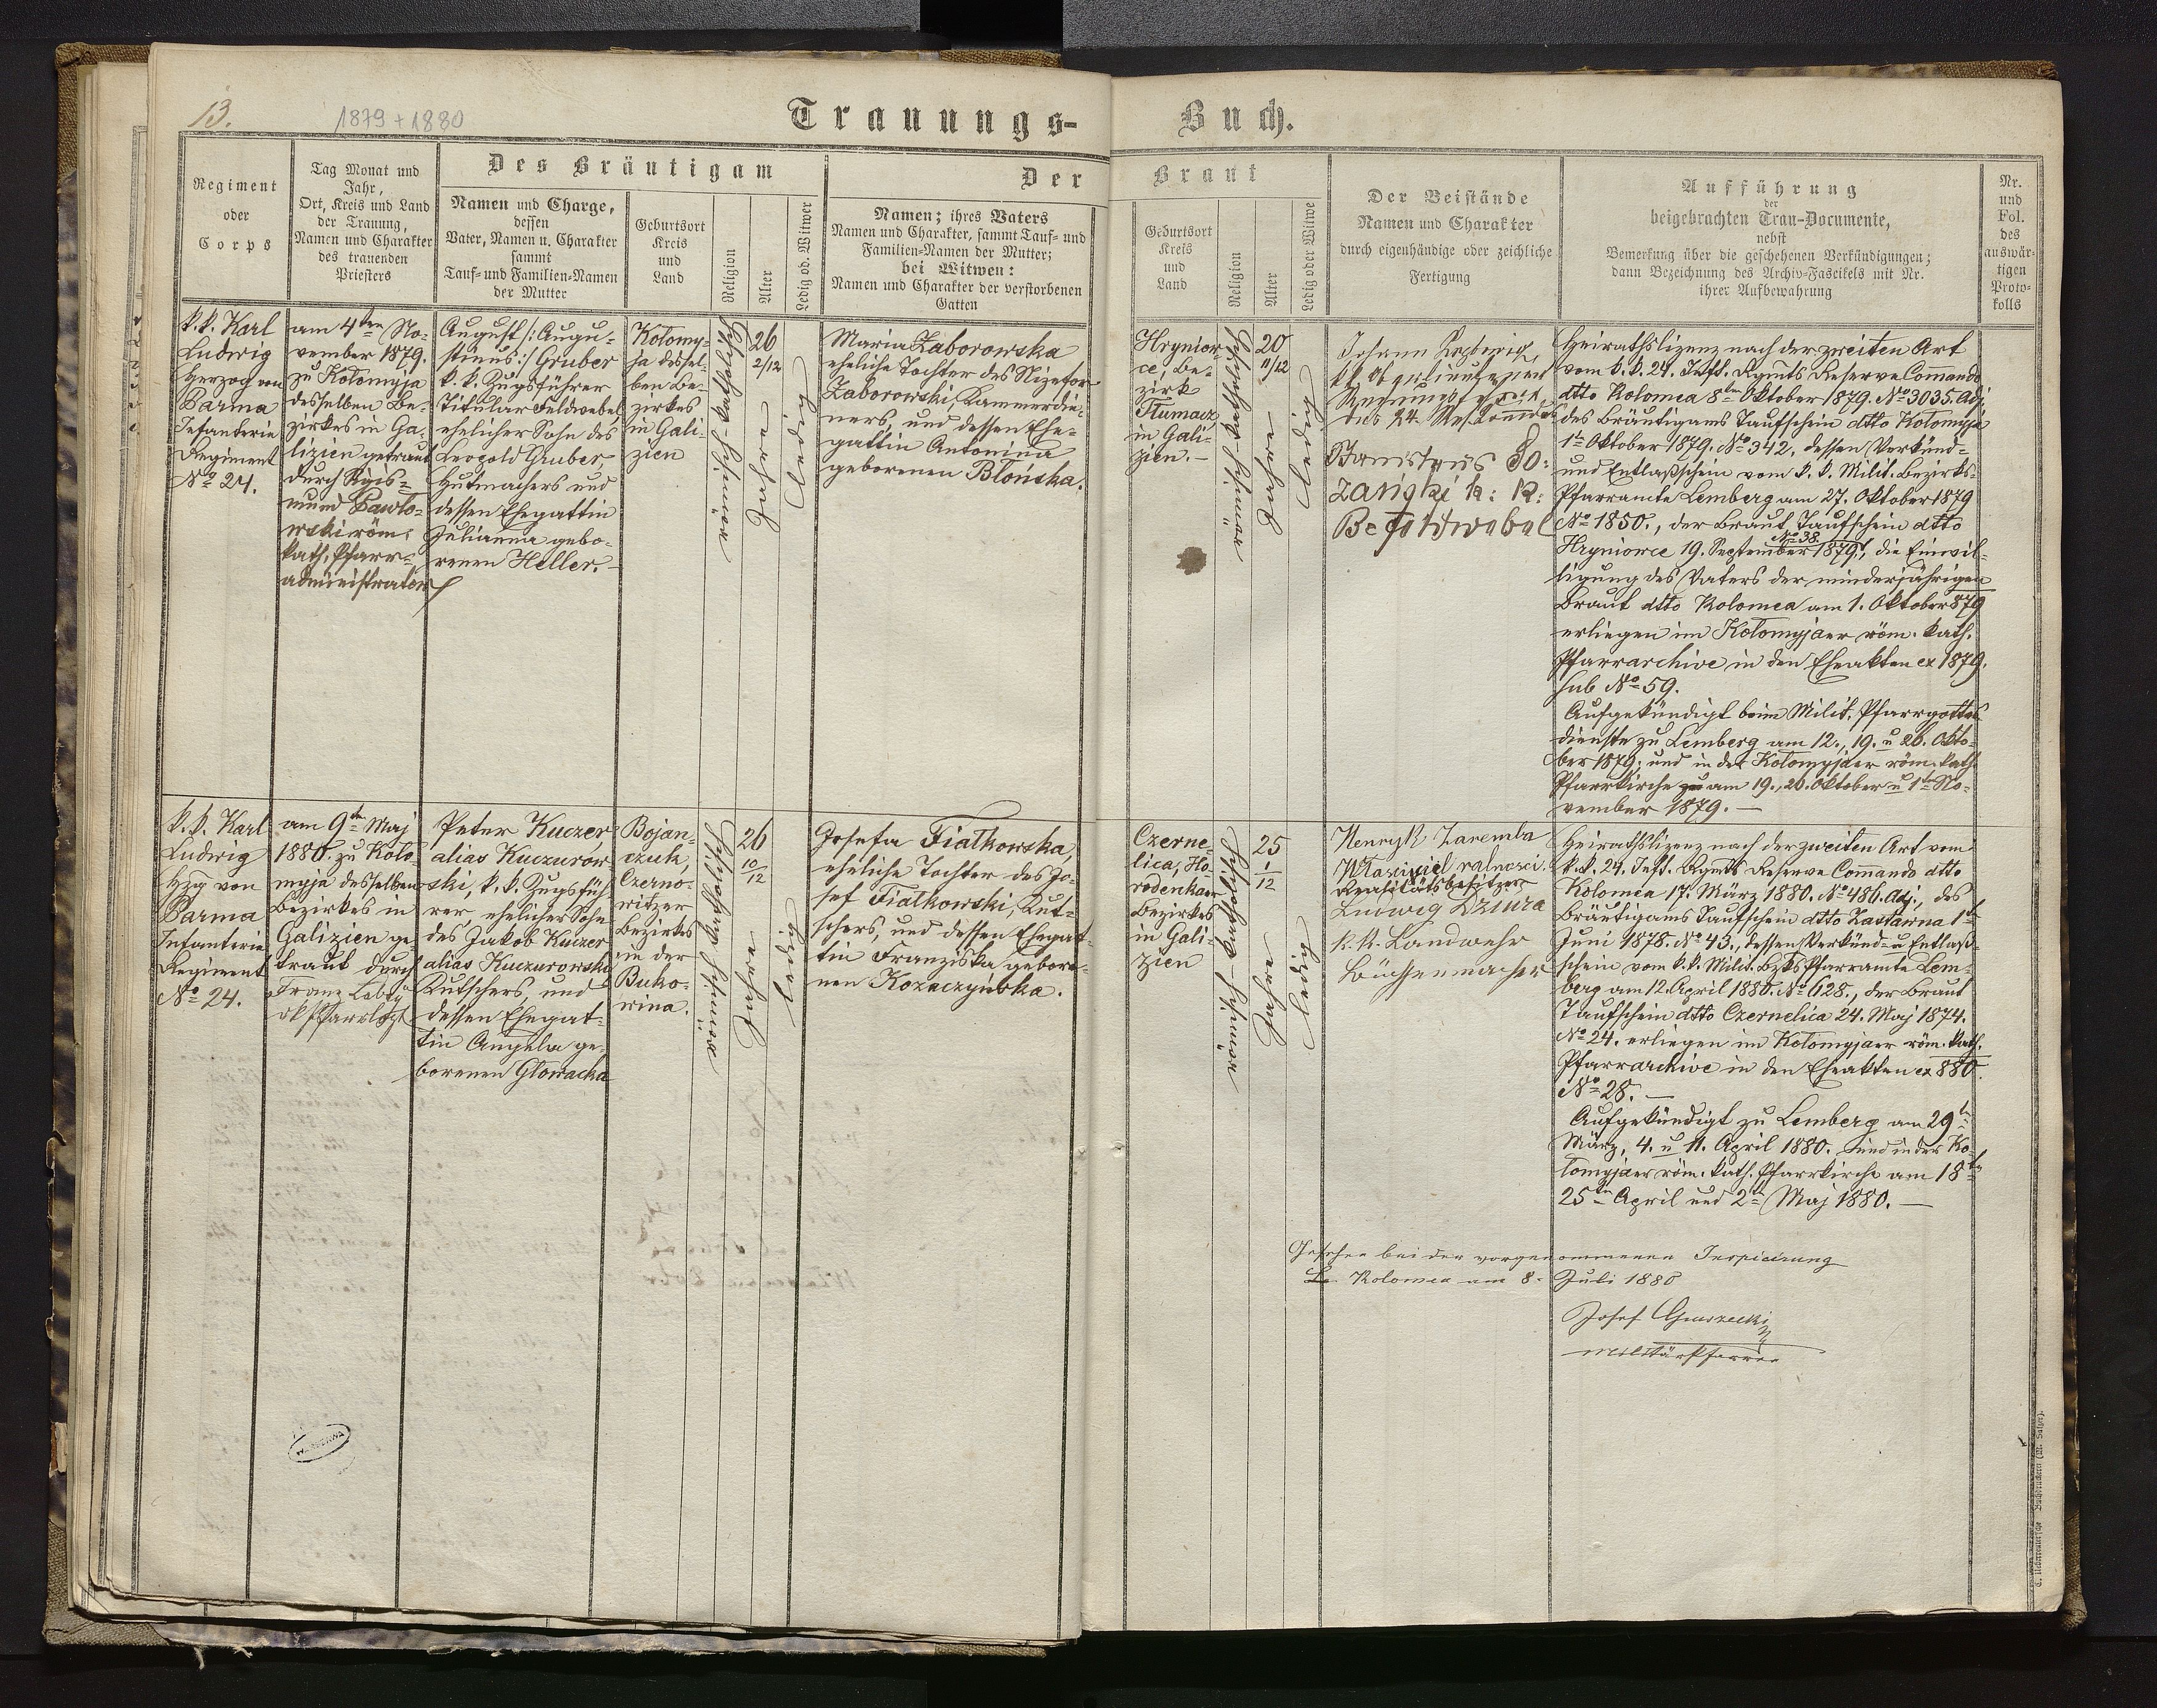 13.
1879 + 1880
Trauungs-
Buch.
Regiment
oder
Corps
Tag Monat und
Jahr,
Ort, Kreis und Land
der Trauung,
Namen und Charakter
des trauenden
Priesters
Des Bräutigam
Namen und Charge,
dessen
Vater, Namen u. Charakter
sammt
Tauf- und Familien-Namen
der Mutter
Geburtsort
Kreis
und
Land
Religion
Alter
Ledig od. Witwer
Der
Namen; ihres Vaters
Namen und Charakter, sammt Tauf- und
Familien-Namen der Mutter;
bei Witwen:
Namen und Charakter der verstorbenen
Gatten
Braut
Geburtsort
Kreis
und
Land
Religion
Alter
Ledig oder Witwe
Der Beistände
Namen und Charakter
durch eigenhändige oder zeichliche
Fertigung
Aufführung
der
beigebrachten Trau-Documente,
nebst
Bemerkung über die geschehenen Verkündigungen;
dann Bezeichnung des Archiv-Fascikels mit Nr.
ihrer Aufbewahrung
Nr.
und
Fol.
des
auswär-
tigen
Proto-
kolls
k. k. Karl
Ludwig
Herzog von
Parma
Infanterie
Regiment
No 24.
am 4ten No-
vember 1879.
zu Kołomyja
desselben Be-
zirkes in Ga-
lizien getraut
durch Sigis-
mund Pawło-
wski röm.
kath. Pfarr-
administrator
August /: Augu-
stinus :/ Gruber
k. k. Zugsführer
Titular Feldwebel
ehelicher Sohn des
Leopold Gruber,
Hutmachers und
dessen Ehegattin
Julianna gebo-
renen Heller.-
Kołomy-
ja dessel-
ben Be-
zirkes
in Gali-
zien
26
2/12
ledig
Maria Zaborowska
eheliche Tochter des Nizefor
Zaborowski, Kammerdie-
ners, und dessen Ehe-
gattin Antonina
geborenen Błońska.
Hryniow-
ce, Be-
zirk
Tłumacz
in Gali-
zien.-
20
11/12
ledig
Johann
des 24.
k: k:
Heirathslizenz nach der zweiten Art
vom k. k. 24. Inft. Rgmts Reserve Commando
dtto Kolomea 8ten Oktober 1879. No 3035. Adj.
des Bräutigams Taufschein dtto Kołomyja
1ten Oktober 1879. No 342, dessen Verkünd-
und Entlaßschein vom k. k. Milit. Bezirks-
Pfarramte Lemberg am 27. Oktober 1879
No 1850., der Braut Taufschein dtto
No 38.
Hryniowce 19. September 1879, die Einwil-
ligung des Vaters der minderjährigen
Braut dtto Kolomea am 1. Oktober 879
erliegen im Kołomyjaer röm. kath.
Pfarrarchive in den Eheakten ex 1879.
sub No 59.
Aufgekündigt beim Milit. Pfarrgottes-
dienste zu Lemberg am 12., 19. u 26. Okto-
ber 1879; und in der Kołomyjaer röm. kath.
Pfarrkirche am 19., 26. Oktober u 1ten No-
vember 1879. —
k. k. Karl
Ludwig
Hzg von
Parma
Infanterie
Regiment
No 24.
am 9ten Maj
1880. zu Koło-
myja desselben
Bezirkes in
Galizien ge-
traut durch
Franz
Peter Kuczer
alias Kuczurow-
ski, k. k. Zugsfüh-
rer, ehelicher Sohn
des Jakob Kuczer
alias Kuczurowski
Kutschers, und
dessen Ehegat-
tin Angela ge-
borenen Głowacka
Bojan-
czuk,
Czerno-
witzer
Bezirkes
in der
Buko-
wina.
26
10/12
ledig
Josefa Fiałkowska,
eheliche Tochter des Jo-
sef Fiałkowski, Kut-
schers, und dessen Ehegat-
tin Franziska gebore-
nen Kozaczynska.
Czerne-
lica, Ho-
rodenkaer
Bezirkes
in Gali-
zien
25
1/12
ledig
Henryk Zaremba
Realitätsbesitzer
Ludwig Dziura
k. k. Landwehr
Büchsenmacher
Heirathslizenz nach der zweiten Art vom
k. k. 24. Inft. Rgmts Reserve Commando dtto
Kolomea 17. März 1880. No 486. Adj., des
Bräutigams Taufschein dtto Zastawna 1ten
Juni 1878. No 43., dessen Verkünd- u Entlaß-
schein vom k. k. Milit. Bzks Pfarramte Lem-
berg am 12. April 1880. No 628., der Braut
Taufschein dtto Czernelica 24. Maj 1874.
No 24. erliegen im Kołomyjaer röm. kath.
Pfarrarchive in den Eheakten ex 880.
No 28. —
Aufgekündigt zu Lemberg am 29ten
März, 4. u 11. April 1880. und in der Ko-
łomyjaer röm. kath. Pfarrkirche am 18ten
25ten April und 2ten Maj 1880. —
Gesehen bei der vorgenommenen Inspicirung
Kolomea am 8. Juli 1880
Josef
Militärpfarrer